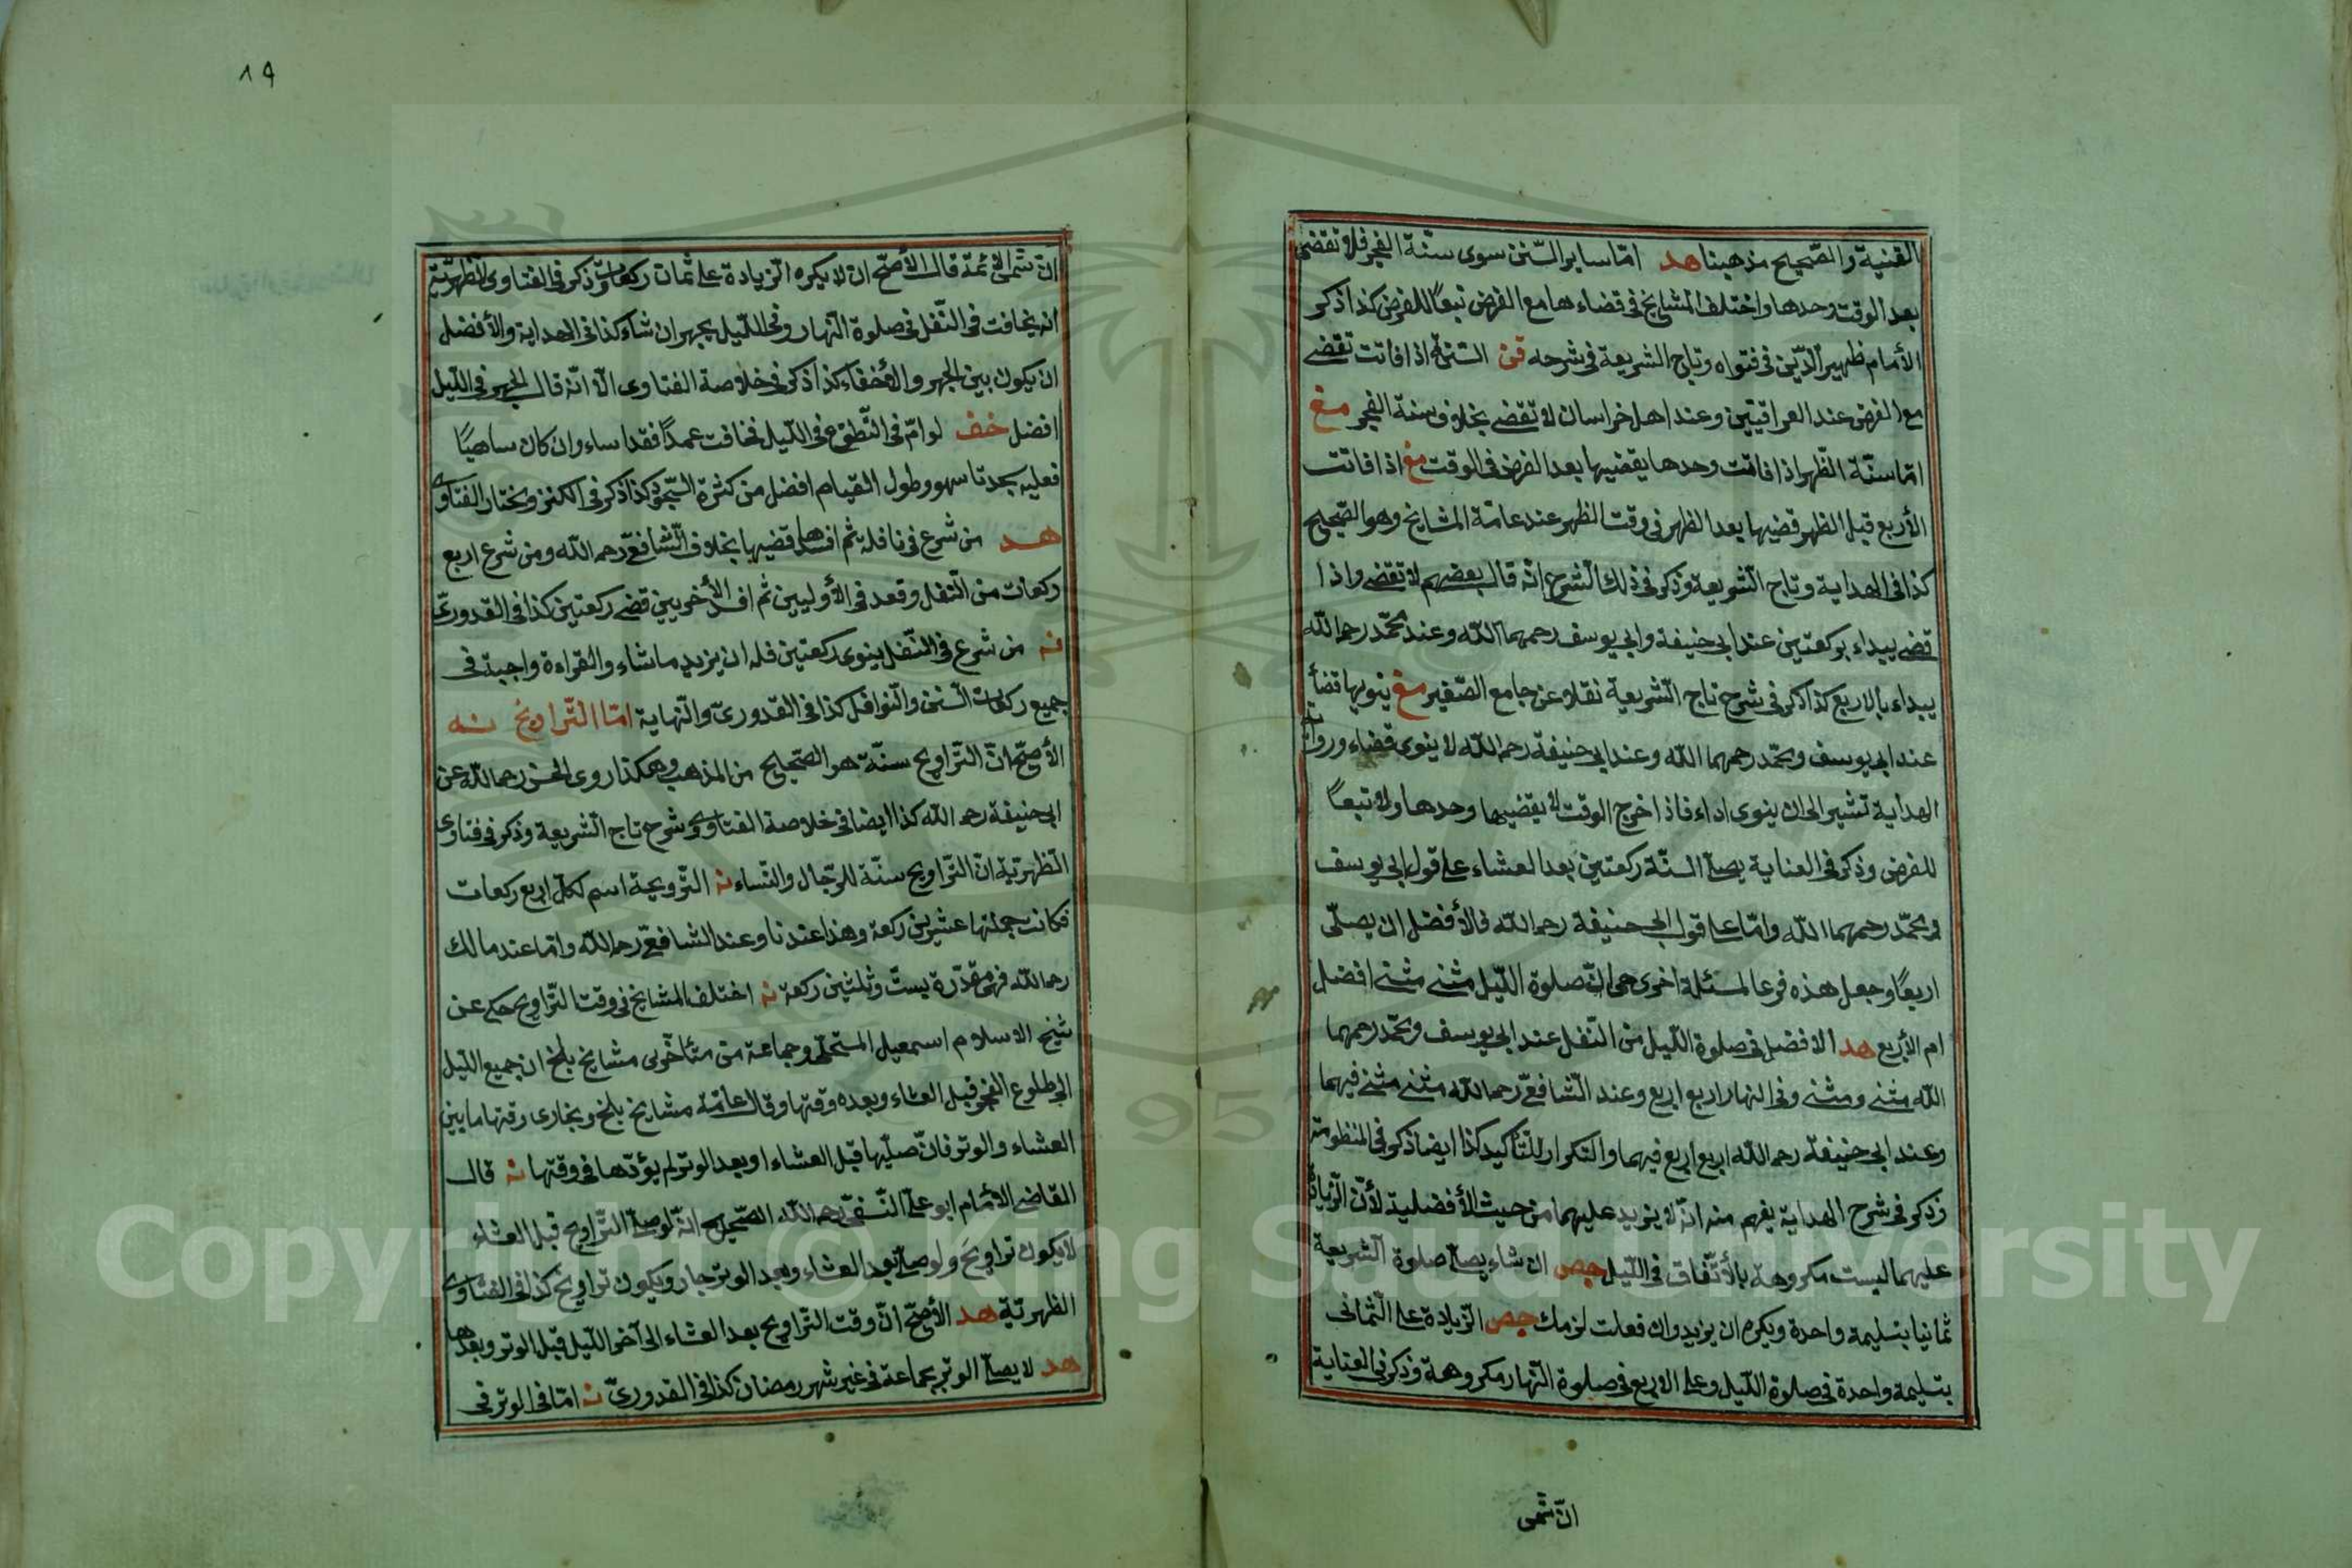 القنية والصّحيح مذهبنا هد امّا ساير السّنن سوى سنّة الفجر فلا تقضى
بعد الوقت وحدها واختلف المشايخ في قضاءها مع الفرض تبعًا للفرض كذا ذكر
الأمام ظهير الدّين في فتواه وتاج الشريعة في شرحه قن السّنّة اذا فاتت تقضى
مع الفرض عند العراقيّين وعند اهل خراسان لا تقضى بخلاف سنة الفجر مغ
امّا سنّة الظّهر اذا فاتت وحدها يقضيها بعد الفرض في الوقت مغ اذا فاتت
الأربع قبل الظهر قضيها بعد الظهر في وقت الظهر عند عامّة المشايخ وهو الصّحيح
كذا في الهداية وتاج الشّريعة وذكر في ذلك الشرح انّه قال بعضهم لا تقضى واذا
قضى يبداء بركعتين عند ابي حنيفة وابي يوسف رحمهما اللّه وعند محمّد رحمه اللّه
يبداء بالاربع كذا ذكر في شرح تاج الشّريعة نقلا عن جامع الصّغير مغ ينويها قضأ
عند ابي يوسف ومحمّد رحمهما اللّه وعند ابي حنيفة رحمه اللّه لا ينوى قضاء ورواية
الهداية تشير الى ان ينوى اداء فاذا خرج الوقت لا يقضيها وحدها ولا تبعًا
للفرض وذكر في العناية يصلّى السنّة ركعتين بعد العشاء على قول ابي يوسف
ومحمّد رحمهما اللّه وامّا على قول ابي حنيفة رحمه اللّه فالأفضل ان يصلّى
اربعًا وجعل هذه فرعا لمسئلة اخرى هي انّ صلوة اللّيل مثنى مثنى افضل
ام الأربع هد الافضل في صلوة اللّيل من النّفل عند ابي يوسف ومحمّد رحمهما
اللّه مثنى ومثنى وفي النهار اربع اربع وعند الشّافعيّ رحمه اللّه مثنى مثنى فيهما
وعند ابي حنيفة رحمه اللّه اربع اربع فيهما والتكرار للتّأكيد كذا ايضا ذكر في المنظومة
وذكر في شرح الهداية يفهم منه انّه لا يزيد عليهما من حيث الأفضلية لأنّ الزّيادة
عليهما ليست مكروهة بالأتّفاق في اللّيل جص ان شاء يصلّى صلوة الشريعة
ثمانيا بتسليمة واحدة ويكره ان يزيد وان فعلت لزمك جص الزّيادة على الثّمانى
بتسليمة واحدة في صلوة اللّيل وعلى الاربع في صلوة النّهار مكروهة وذكر في العناية
انّ شمس
١٩
انّ شمس الائمّة قال الأصحّ ان لا يكره الزّيادة على ثمان ركعات وذكر في الفتاوى الظهريّة
انه يخافت في النّفل في صلوة النّهار وفي اللّيل يجهر ان شاء كذا في الهداية والأفضل
ان يكون بين الجهر والأخفاء كذا ذكر في خلاصة الفتاوى الّا انّه قال الجهر في اللّيل
افضل خف لو امّ في التّطوّع في اللّيل فخافت عمدًا فقد اساء وان كان ساهيًا
فعليه سجدتا سهو وطول القيام افضل من كثرة السّجود كذا ذكر في الكنز ومختار الفتاوى
هد من شرع في نافلة ثم افسدها قضيها بخلاف الشّافعيّ رحمه اللّه ومن شرع اربع
ركعات من النّفل وقعد في الأوليين ثم افسد الأخريين قضى ركعتين كذا في القدورىّ
نه من شرع في النّفل ينوى ركعتين فله ان يزيد ما شاء والقراءة واجبة في
جميع ركعات السّنن والنّوافل كذا في القدورىّ والنّهاية امّا التّراويح نه
الأصحّ انّ التّراويح سنّة هو الصّحيح من المذهب وهكذا روى الحسن رحمه اللّه عن
ابي حنيفة رحمه اللّه كذا ايضا في خلاصة الفتاوى وشرح تاج الشّريعة وذكر في فتاوى
الظّهريّة انّ التّراويح سنّة للرّجال والنّساء نه التّرويحة اسم لكلّ اربع ركعات
فكانت جملتها عشرين ركعة وهذا عندنا وعند الشافعيّ رحمه اللّه وامّا عند مالك
رحمه اللّه فهى مقدّرة بستّ وثلثين ركعة نه اختلف المشايخ في وقت التّراويح حكى عن
شيخ الاسلام اسمعيل المستملّى وجماعة من متأخّرى مشايخ بلخ ان جميع اللّيل
الى طلوع الفجر قبل العشاء وبعده وقتها وقال عامّة مشايخ بلخ وبخارى وقتها ما بين
العشاء والوتر فان صلّيها قبل العشاء او بعد الوتر لم يؤدّها في وقتها نه قال
القاضى الأمام ابو علىّ النّسفىّ رحمه اللّه الصّحيح انّه لو صلّى التّراويح قبل العشاء
لا يكون تراويح ولو صلّى بعد العشاء وبعد الوتر جاز ويكون تراويح كذا في الفتاوى
الظهريّة هد الأصحّ انّ وقت التّراويح بعد العشاء الى آخر اللّيل قبل الوتر وبعدها
هد لا يصلّى الوتر بجماعة في غير شهر رمضان كذا في القدورىّ نه امّا في الوتر في
Copyright © King Saud University